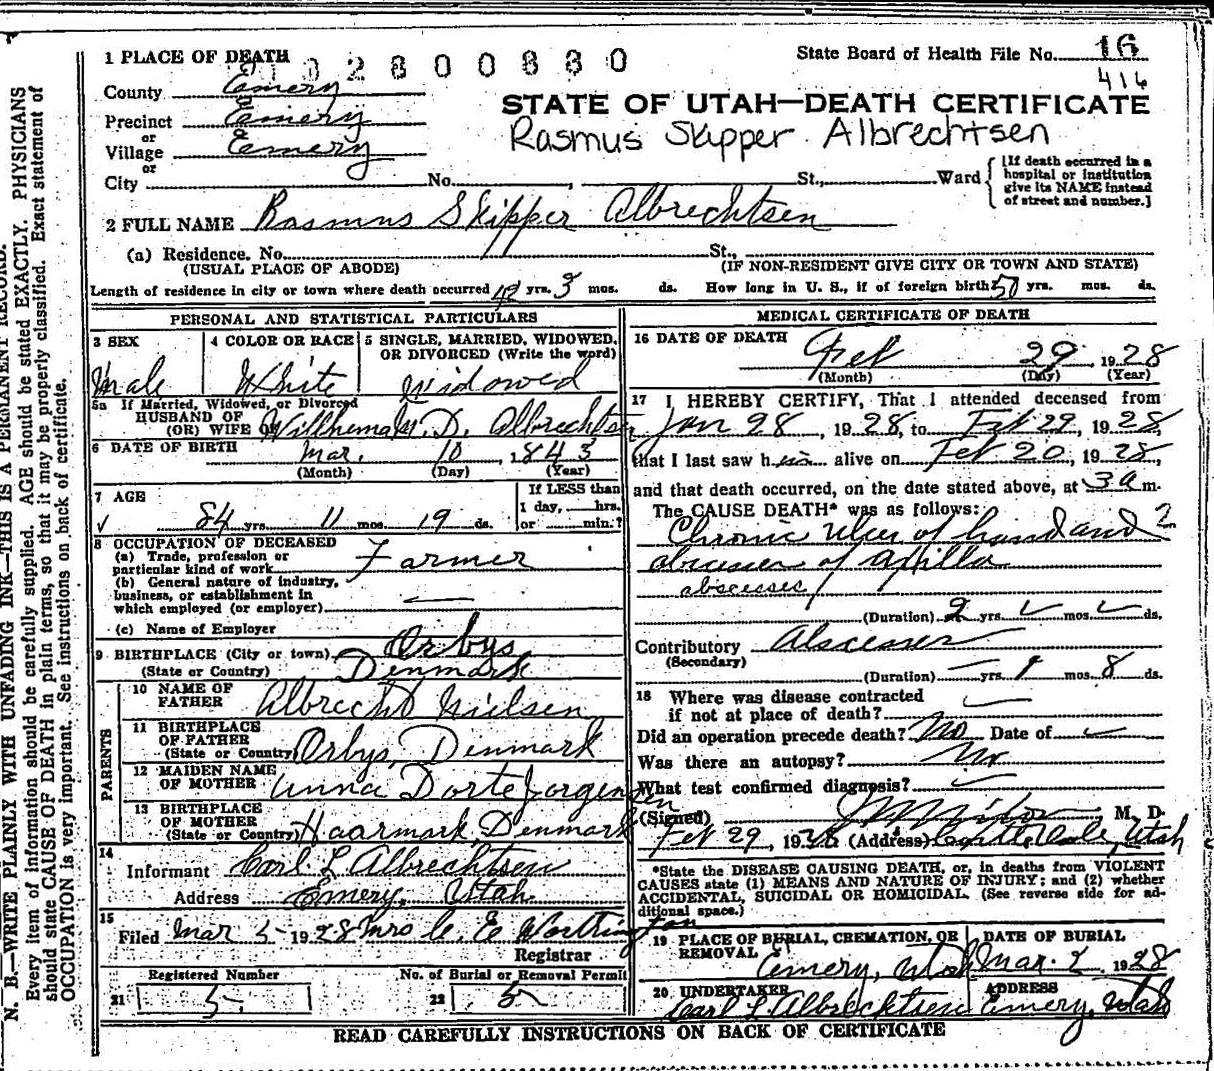 1 PLACE OF DEATH
2 8 0 0 8 3 0
State Board of Health File No. 16
416
County Emery
STATE OF UTAH—DEATH CERTIFICATE
Precinct Emery
or
Rasmus Skipper Albrechtsen
Village Emery
or
City No. , St., Ward
[If death occurred in a
hospital or institution
give its NAME instead
of street and number.]
2 FULL NAME Rasmus Skipper Albrechtsen
(a) Residence. No. St.,
(USUAL PLACE OF ABODE) (IF NON-RESIDENT GIVE CITY OR TOWN AND STATE)
Length of residence in city or town where death occurred 42 yrs. 3 mos. ds. How long in U. S., if of foreign birth? 50 yrs. mos. ds.
PERSONAL AND STATISTICAL PARTICULARS
3 SEX
Male
4 COLOR OR RACE
White
5 SINGLE, MARRIED, WIDOWED,
OR DIVORCED (Write the word)
Widowed
5a If Married, Widowed, or Divorced
HUSBAND OF
(OR) WIFE OF D. Albrechtsen
6 DATE OF BIRTH Mar. 10, 1843
(Month) (Day) (Year)
7 AGE
84 yrs. 11 mos. 19 ds.
If LESS than
1 day, hrs.
or min.?
8 OCCUPATION OF DECEASED
(a) Trade, profession or
particular kind of work Farmer
(b) General nature of industry,
business, or establishment in
which employed (or employer)
(c) Name of Employer
9 BIRTHPLACE (City or town) Orbys
(State or Country) Denmark
PARENTS
10 NAME OF
FATHER Albrecht Nielsen
11 BIRTHPLACE
OF FATHER
(State or Country) Orbys, Denmark
12 MAIDEN NAME
OF MOTHER Anna Dorte Jorgensen
13 BIRTHPLACE
OF MOTHER
(State or Country) Haarmark Denmark
14
Informant Carl L Albrechtsen
Address Emery, Utah
15
Filed Mar 5 1928 Mrs C. E Worthington
Registrar
Registered Number
21 5
No. of Burial or Removal Permit
22 5
MEDICAL CERTIFICATE OF DEATH
16 DATE OF DEATH
Feb 29, 1928
(Month) (Day) (Year)
17 I HEREBY CERTIFY, That I attended deceased from
Jan 28, 1928, to Feb 29, 1928,
that I last saw him alive on Feb 20, 1928,
and that death occurred, on the date stated above, at 3 a m.
The CAUSE DEATH* was as follows:
Chronic ulcer of hand and ?
abscesses of axilla
abscesses
(Duration) 2 yrs. mos. ds.
Contributory Abscesses
(Secondary)
(Duration) yrs. 1 mos. 8 ds.
18 Where was disease contracted
if not at place of death?
Did an operation precede death? No Date of
Was there an autopsy? No
What test confirmed diagnosis?
(Signed) M. D.
Feb 29, 1928 (Address) Castle Dale, Utah
*State the DISEASE CAUSING DEATH, or, in deaths from VIOLENT
CAUSES state (1) MEANS AND NATURE OF INJURY; and (2) whether
ACCIDENTAL, SUICIDAL OR HOMICIDAL. (See reverse side for ad-
ditional space.)
19 PLACE OF BURIAL, CREMATION, OR
REMOVAL
Emery, Utah
DATE OF BURIAL
Mar. 2, 1928
20 UNDERTAKER
Carl L Albrechtsen
ADDRESS
Emery, Utah
READ CAREFULLY INSTRUCTIONS ON BACK OF CERTIFICATE
N. B.—WRITE PLAINLY WITH UNFADING INK—THIS IS A PERMANENT RECORD.
Every item of information should be carefully supplied. AGE should be stated EXACTLY. PHYSICIANS
should state CAUSE OF DEATH in plain terms, so that it may be properly classified. Exact statement of
OCCUPATION is very important. See instructions on back of certificate.